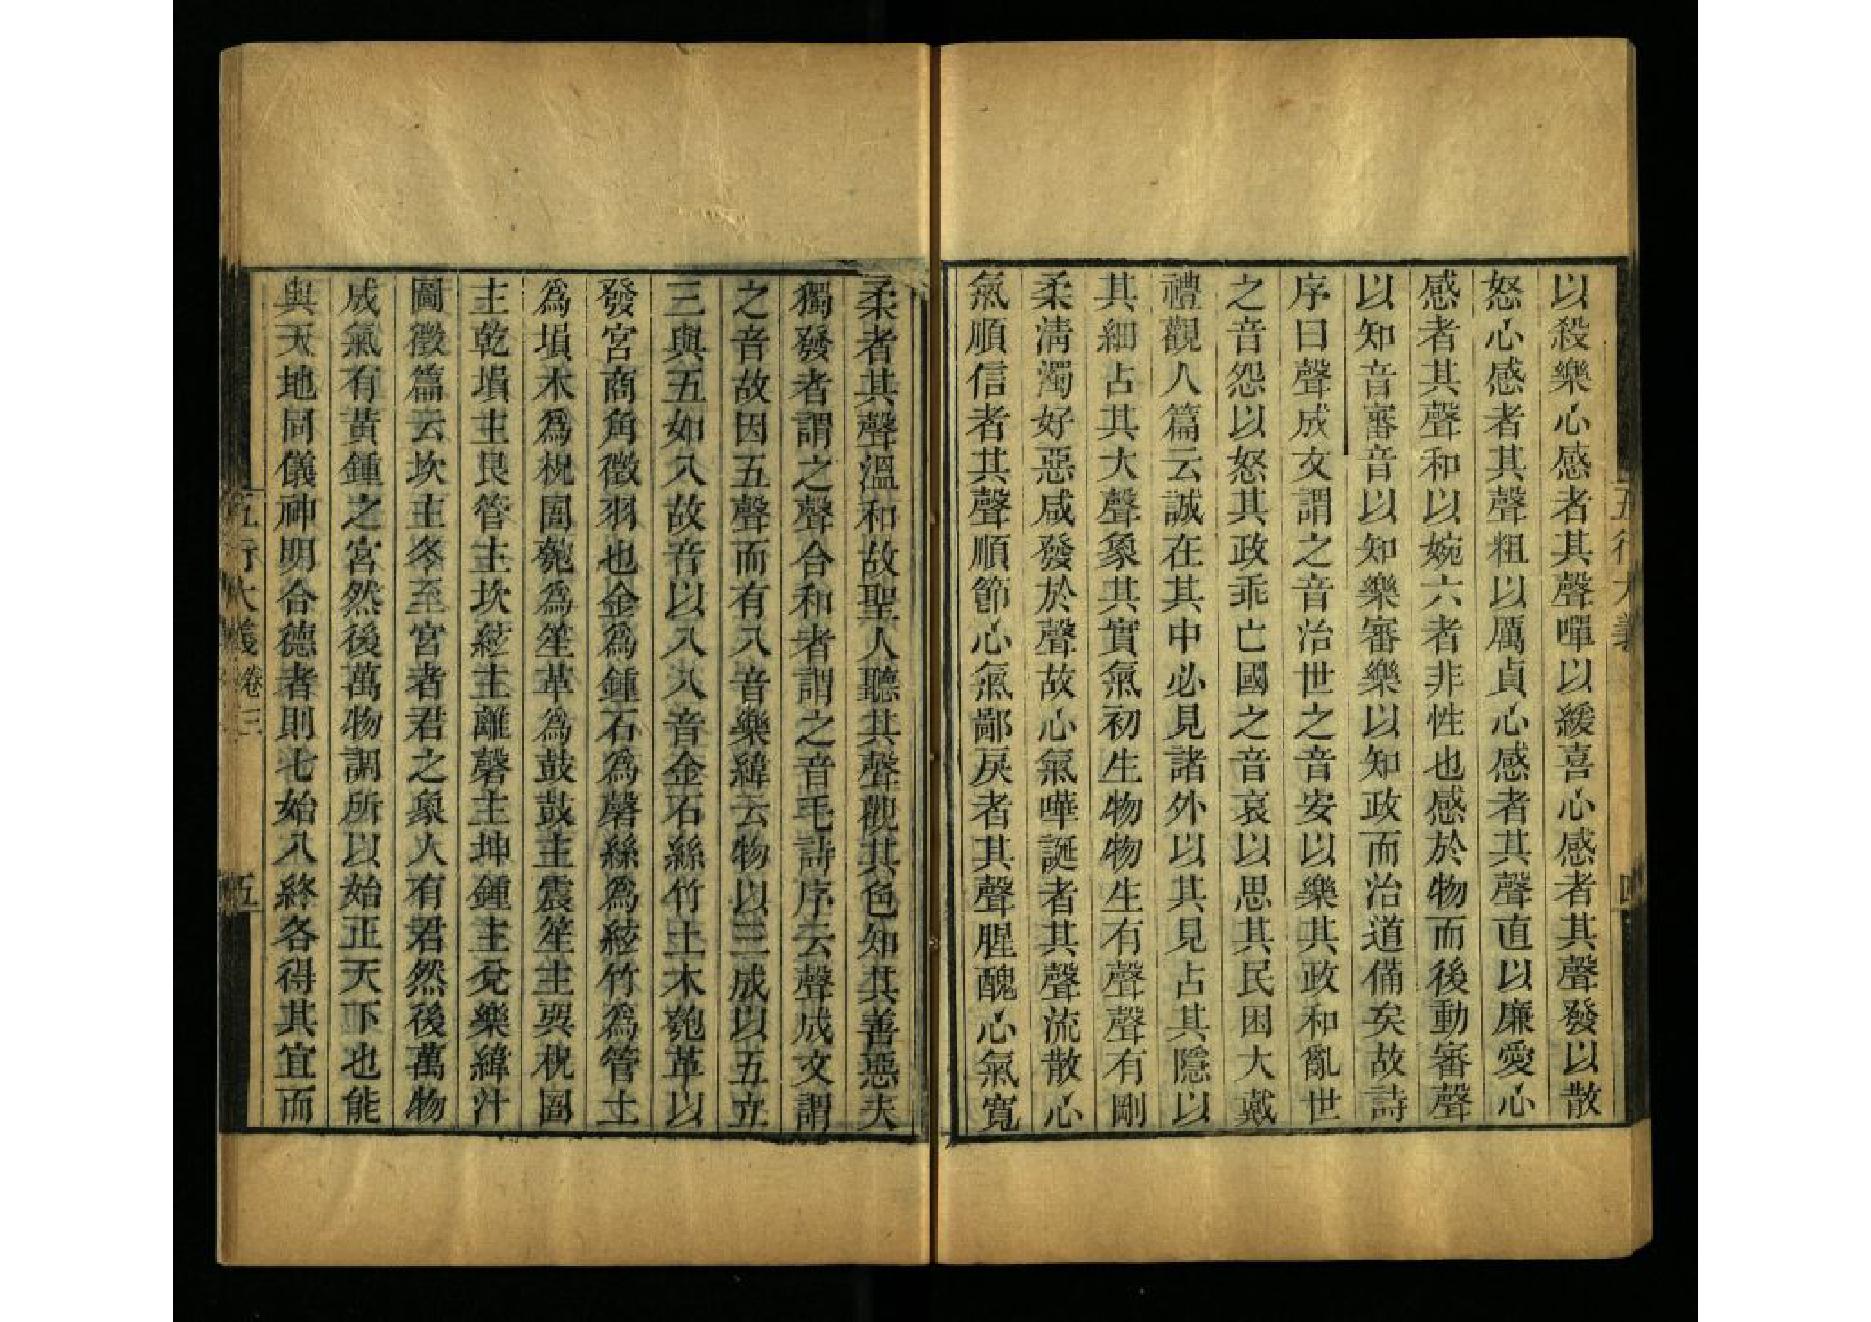 以殺樂心感者其聲嘽以緩喜心感者其聲發以散
怒心感者其聲粗以厲貞心感者其聲直以廉愛心
感者其聲和以婉六者非性也感於物而後動審聲
以知音審音以知樂審樂以知政而治道備矣故詩
序曰聲成文謂之音治世之音安以樂其政和亂世
之音怨以怒其政乖亡國之音哀以思其民困大戴
禮觀人篇云誠在其中必見諸外以其見占其隱以
其細占其大聲象其實氣初生物物生有聲聲有剛
柔淸濁好惡咸發於聲故心氣嘩誕者其聲流散心
氣順信者其聲順節心氣鄙戾者其聲腥醜心氣寬
柔者其聲溫和故聖人聽其聲觀其色知其善惡夫
獨發者謂之聲合和者謂之音毛詩序云聲成文謂
之音故因五聲而有八音樂緯云物以三成以五立
三與五如八故音以八八音金石絲竹土木匏革以
發宮商角徵羽也金爲鍾石爲磬絲爲絃竹爲管土
爲塤木爲柷圄匏爲笙革爲鼓鼓主震笙主巽柷圄
主乾塤主艮管主坎絃主離磬主坤鍾主兌樂緯汁
圖徵篇云坎主冬至宮者君之象人有君然後萬物
成氣有黃鍾之宮然後萬物調所以始正天下也能
與天地同儀神明合德者則七始八終各得其宜而
五行大義 卷三 五
五行大義 四